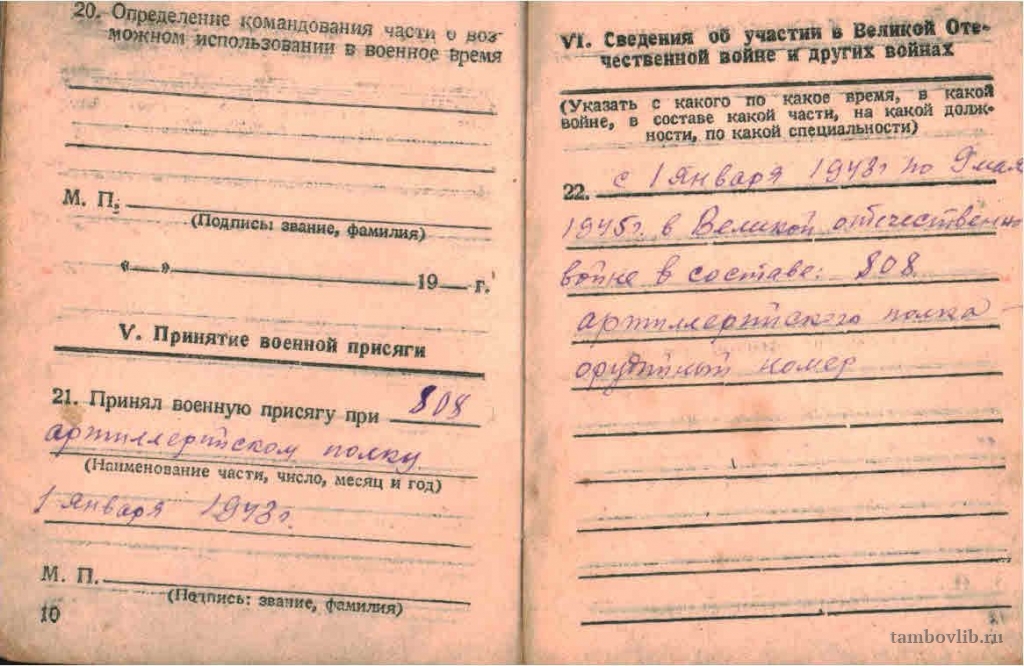 20. Определение командования части о воз-
можном использовании в военное время
М. П.
(Подпись: звание, фамилия)
«—» 19— г.
V. Принятие военной присяги
21. Принял военную присягу при 808
артиллерийском полку
(Наименование части, число, месяц и год)
1 января 1943г.
М. П.
(Подпись: звание, фамилия)
10
VI. Сведения об участии в Великой Оте-
чественной войне и других войнах
(Указать с какого по какое время, в какой
войне, в составе какой части, на какой долж-
ности, по какой специальности)
22. с 1 января 1943г по 9 мая
1945г. в Великой отечественно
войне в составе: 808
артиллерийского полка -
орудийный номер
tambovlib.ru